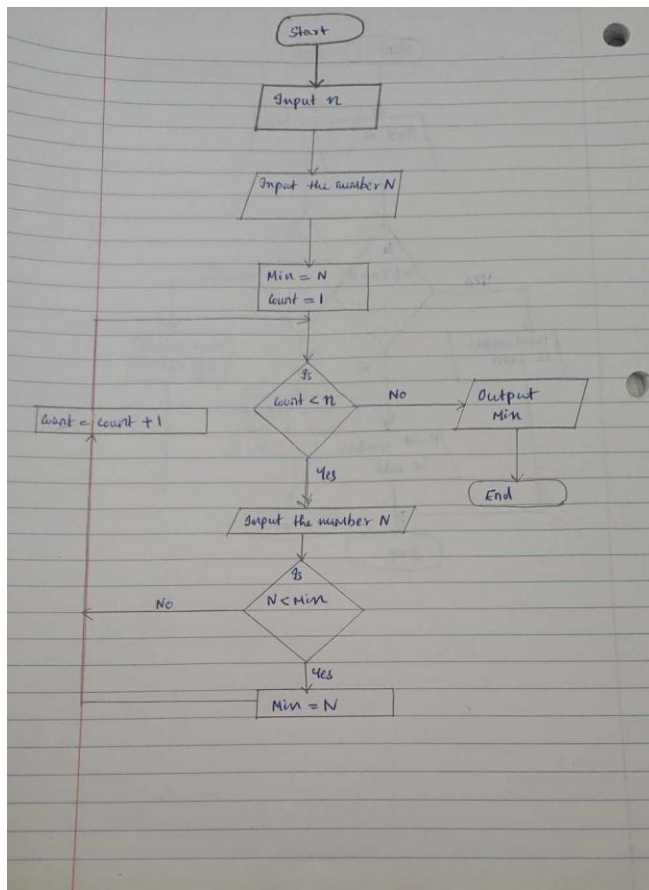 Start
Input n
Input the number N
Min = N
Count = 1
Is
Count < n
No
Output
Min
Count = Count + 1
Yes
End
Input the number N
Is
N < Min
No
Yes
Min = N